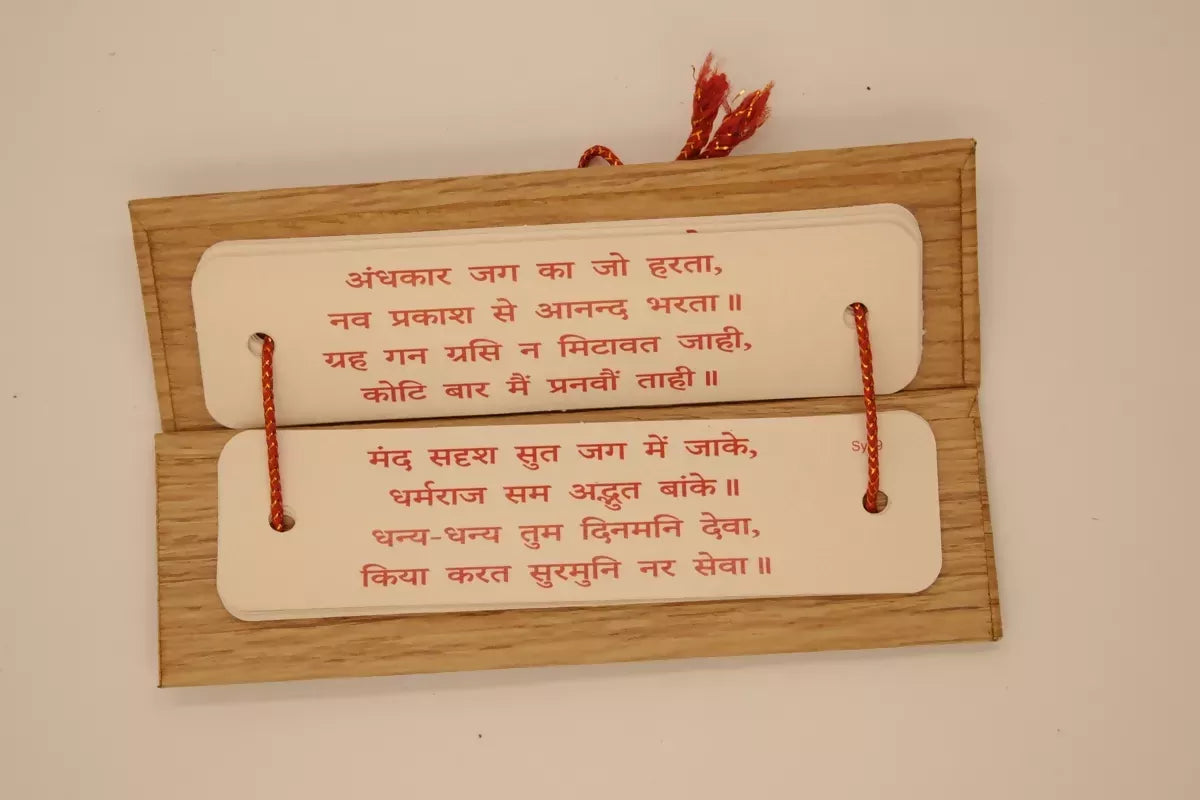 अंधकार जग का जो हरता,
नव प्रकाश से आनन्द भरता॥
ग्रह गन ग्रसि न मिटावत जाही,
कोटि बार मैं प्रनवौं ताही॥
मंद सदृश सुत जग में जाके,
धर्मराज सम अद्भुत बांके॥
धन्य-धन्य तुम दिनमनि देवा,
किया करत सुरमुनि नर सेवा॥